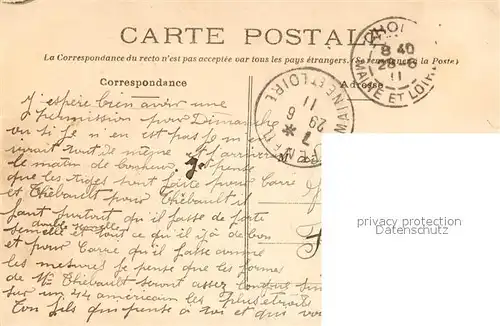 CARTE POSTALE
La Correspondance du recto n'est pas acceptée par tous les pays étrangers. (Se renseigner à la Poste)
Correspondance
Adresse
CHOLET
8 40
28-6
11
MAINE ET LOIRE
MAINE ET LOIRE
7 *
29 6
11
J'espère bien avoir une
permission pour Dimanche
ou si je n'en est pas je
tout de même
le matin de bonheur
que les tiges sont faite pour Carré
et Thébault pour Thébault il
faut surtout qu'il fasse de forte
double
semelle et tout ce qu'il y a de bon
et pour Carré qu'il fasse comme
les mesures je pense que les formes
de Mr Thébault seront assez
sur un 44 américain les plus étroits
Ton fils qui pense à toi et qui
privacy protection
Datenschutz